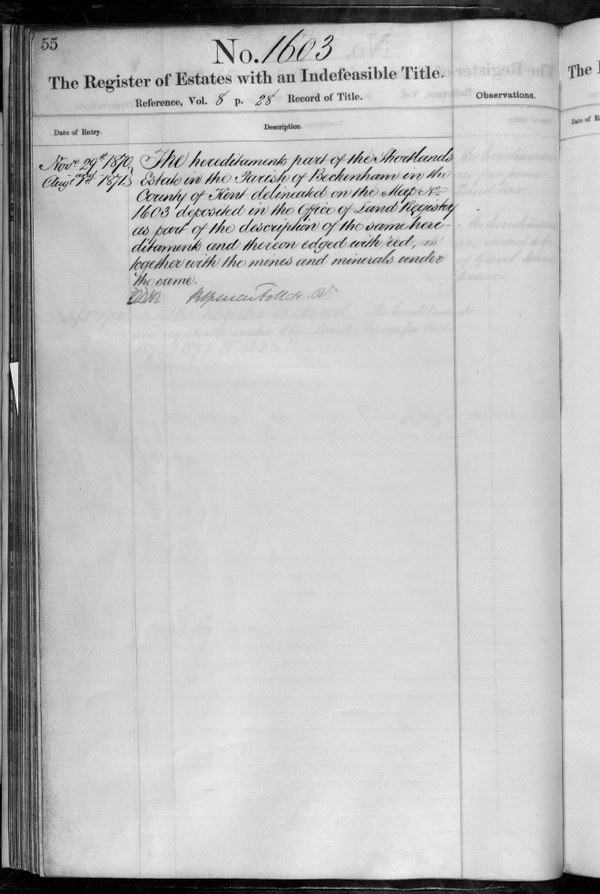 55
No. 1603
The Register of Estates with an Indefeasible Title.
Reference, Vol. 8 p. 28 Record of Title.
Observations.
Date of Entry.
Description.
Novr. 29th 1870, The hereditaments part of the Shortlands
Augt 1871, Estate in the Parish of Beckenham in the
County of Kent delineated on the Map No.
1603 deposited in the Office of Land Registry
as part of the description of the same here-
ditaments and thereon edged with red,
together with the mines and minerals under
the same.
The R
Date of E